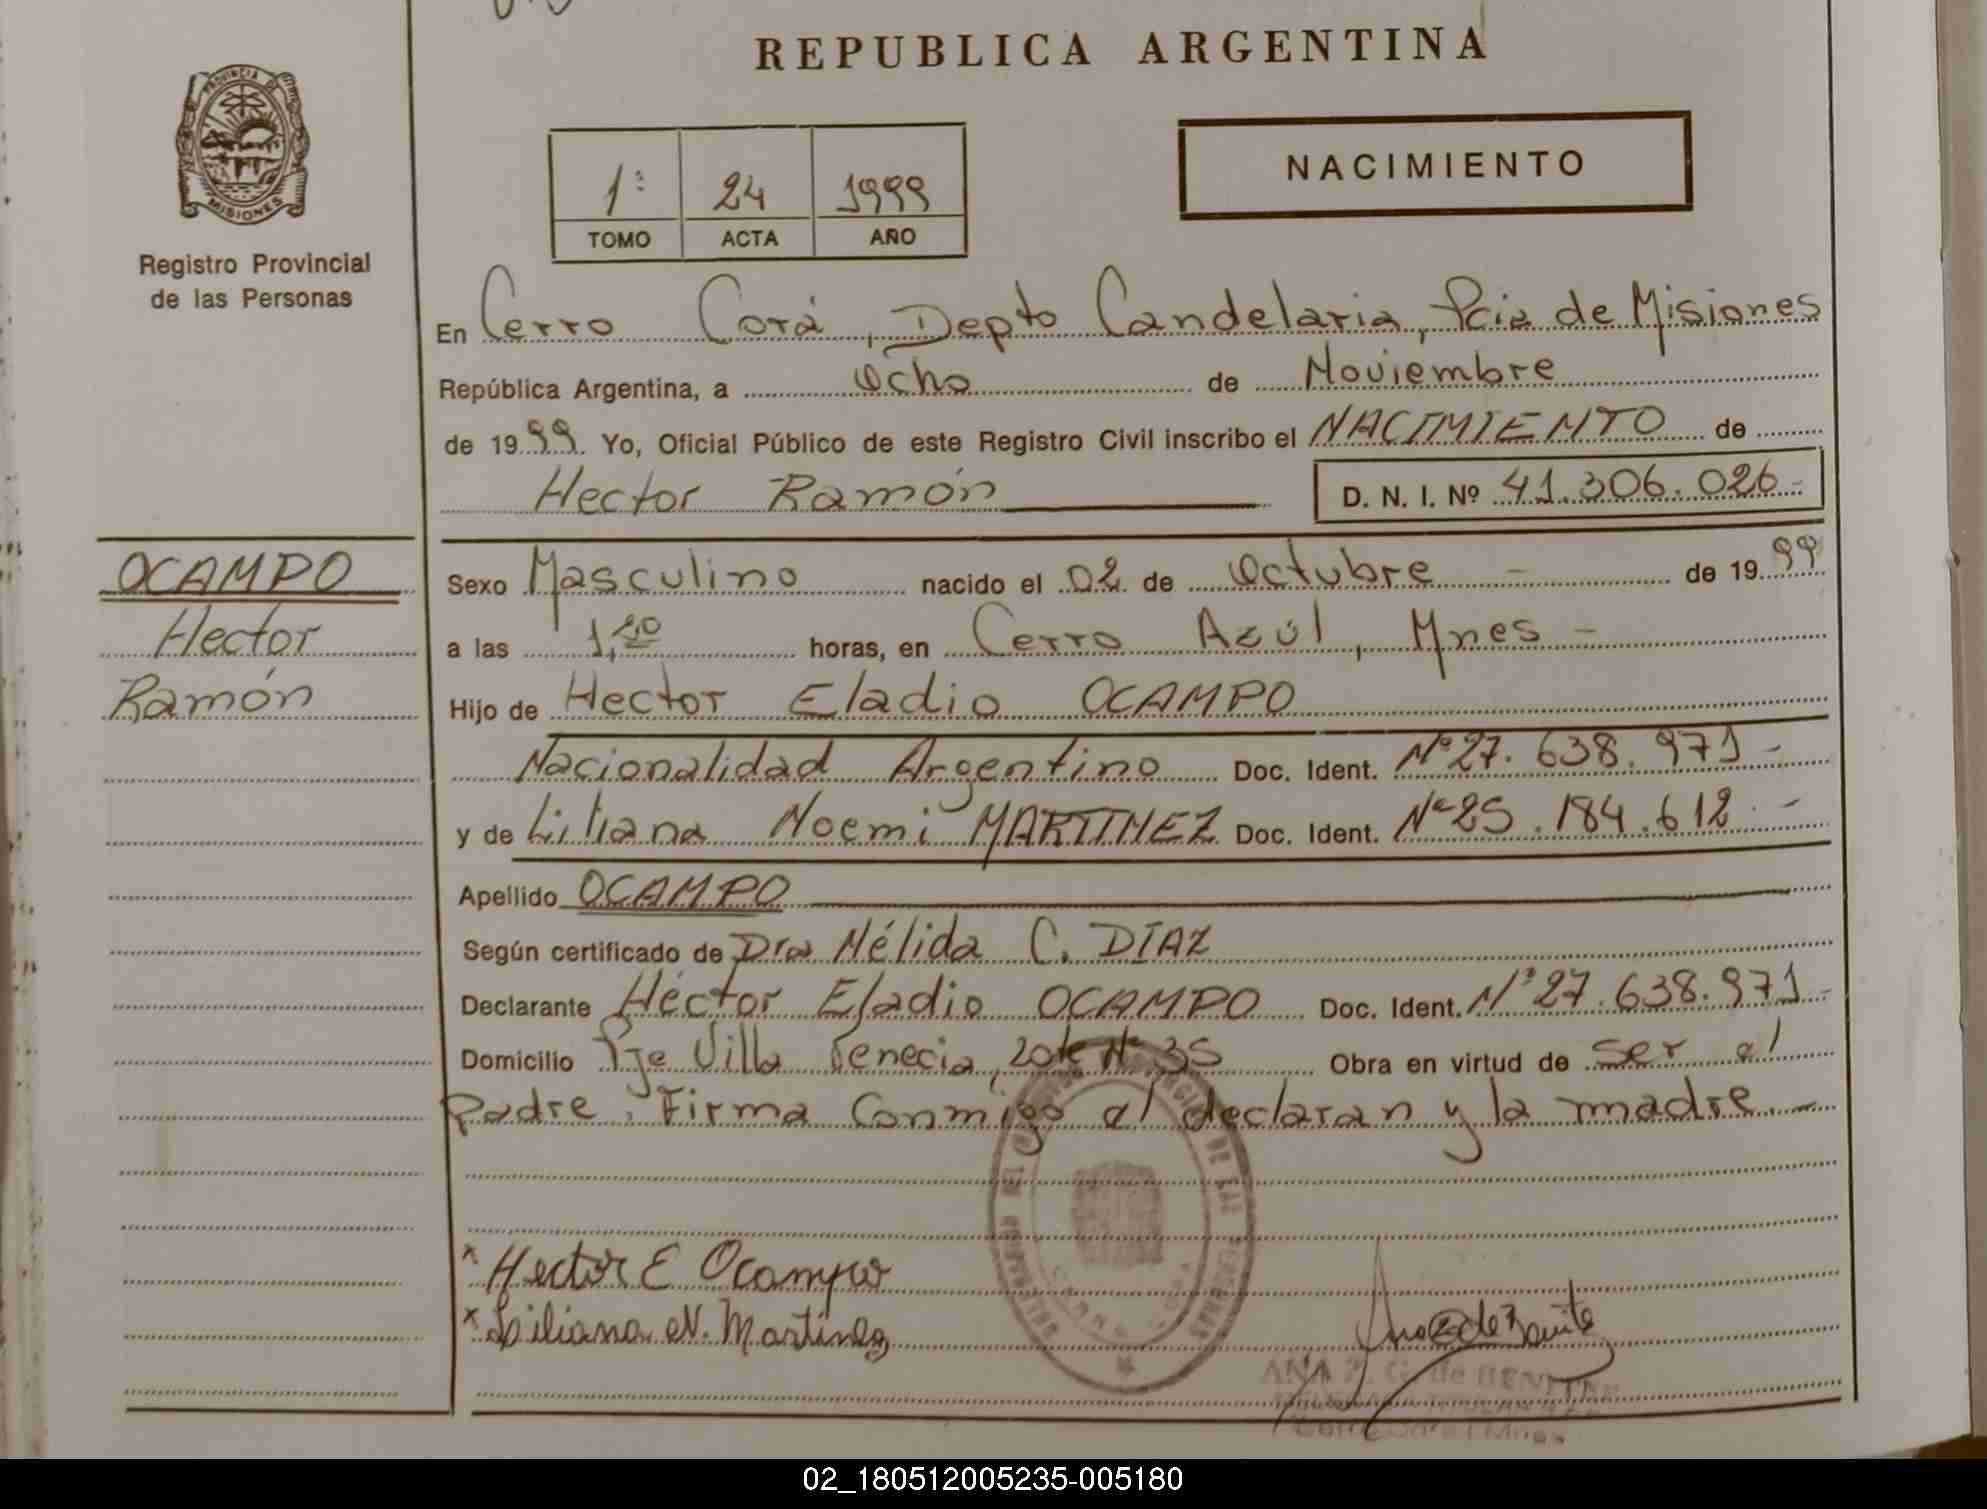 REPUBLICA ARGENTINA
PROVINCIA DE
MISIONES
Registro Provincial
de las Personas
1º 24 1999
TOMO ACTA AÑO
NACIMIENTO
En Cerro Corá, Depto Candelaria, Pcia de Misiones
República Argentina, a Ocho de Noviembre
de 1999. Yo, Oficial Público de este Registro Civil inscribo el NACIMIENTO de
Hector Ramón D. N. I. Nº 41.306.026-
OCAMPO
Hector
Ramón
Sexo Masculino nacido el 02 de Octubre - de 1999
a las 1,20 horas, en Cerro Azúl, Mnes -
Hijo de Hector Eladio OCAMPO
Nacionalidad Argentino Doc. Ident. Nº 27.638.971-
y de Liliana Noemi MARTINEZ Doc. Ident. Nº 25.184.612.-
Apellido OCAMPO
Según certificado de Dra Nélida C. DIAZ
Declarante Héctor Eladio OCAMPO Doc. Ident. Nº 27.638.971-
Domicilio Pje Villa Venecia, Lote Nº 35 Obra en virtud de ser el
Padre. Firma Conmigo el declaran y la madre.-
x Hector E Ocampo
x Liliana N. Martinez
ANA de BENITEZ
02_180512005235-005180